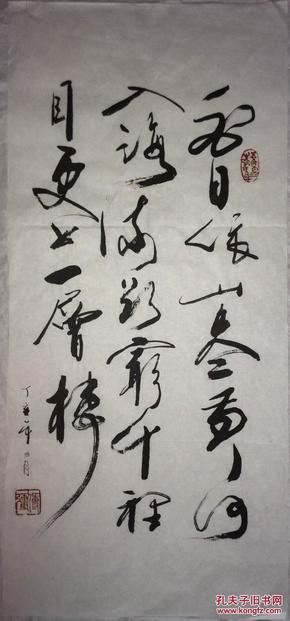 白日依山尽黄河
入海流欲窮千裡
目更上一層樓
丁亥年四月
孔夫子旧书网
www.kongfz.com